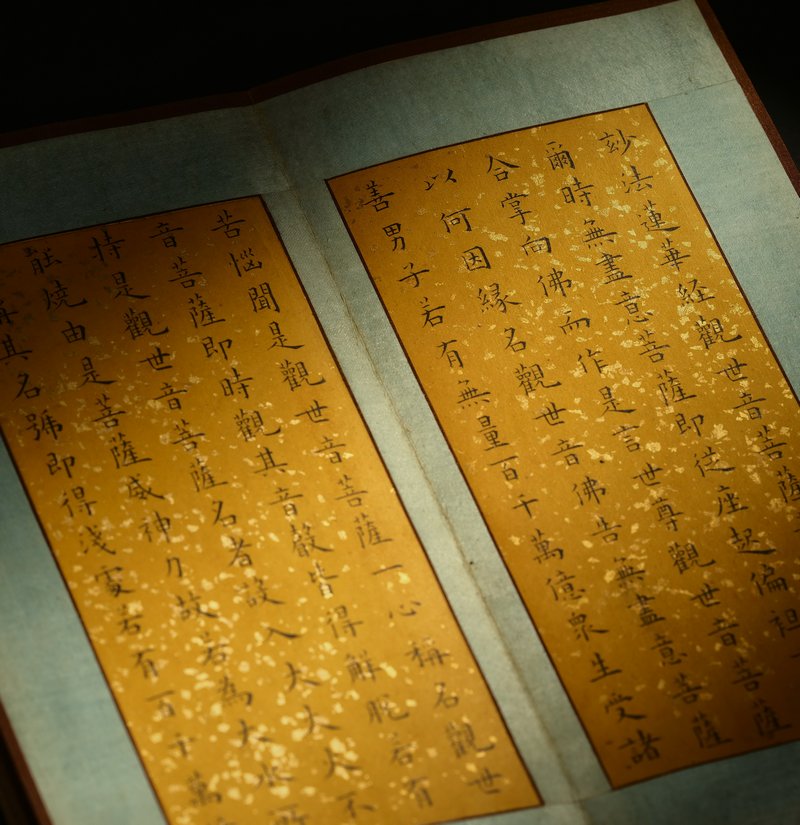 玅法蓮華経觀世音菩薩
爾時無盡意菩薩即従座起偏袒
合掌向佛而作是言世尊觀世音菩薩
以何因縁名觀世音佛告無盡意菩薩
善男子若有無量百千萬億衆生受諸
苦惱聞是觀世音菩薩一心稱名觀世
音菩薩即時觀其音聲皆得解脱若有
持是觀世音菩薩名者設入大火火不
能燒由是菩薩威神力故若為大水所
其名號即得淺處若有百千萬